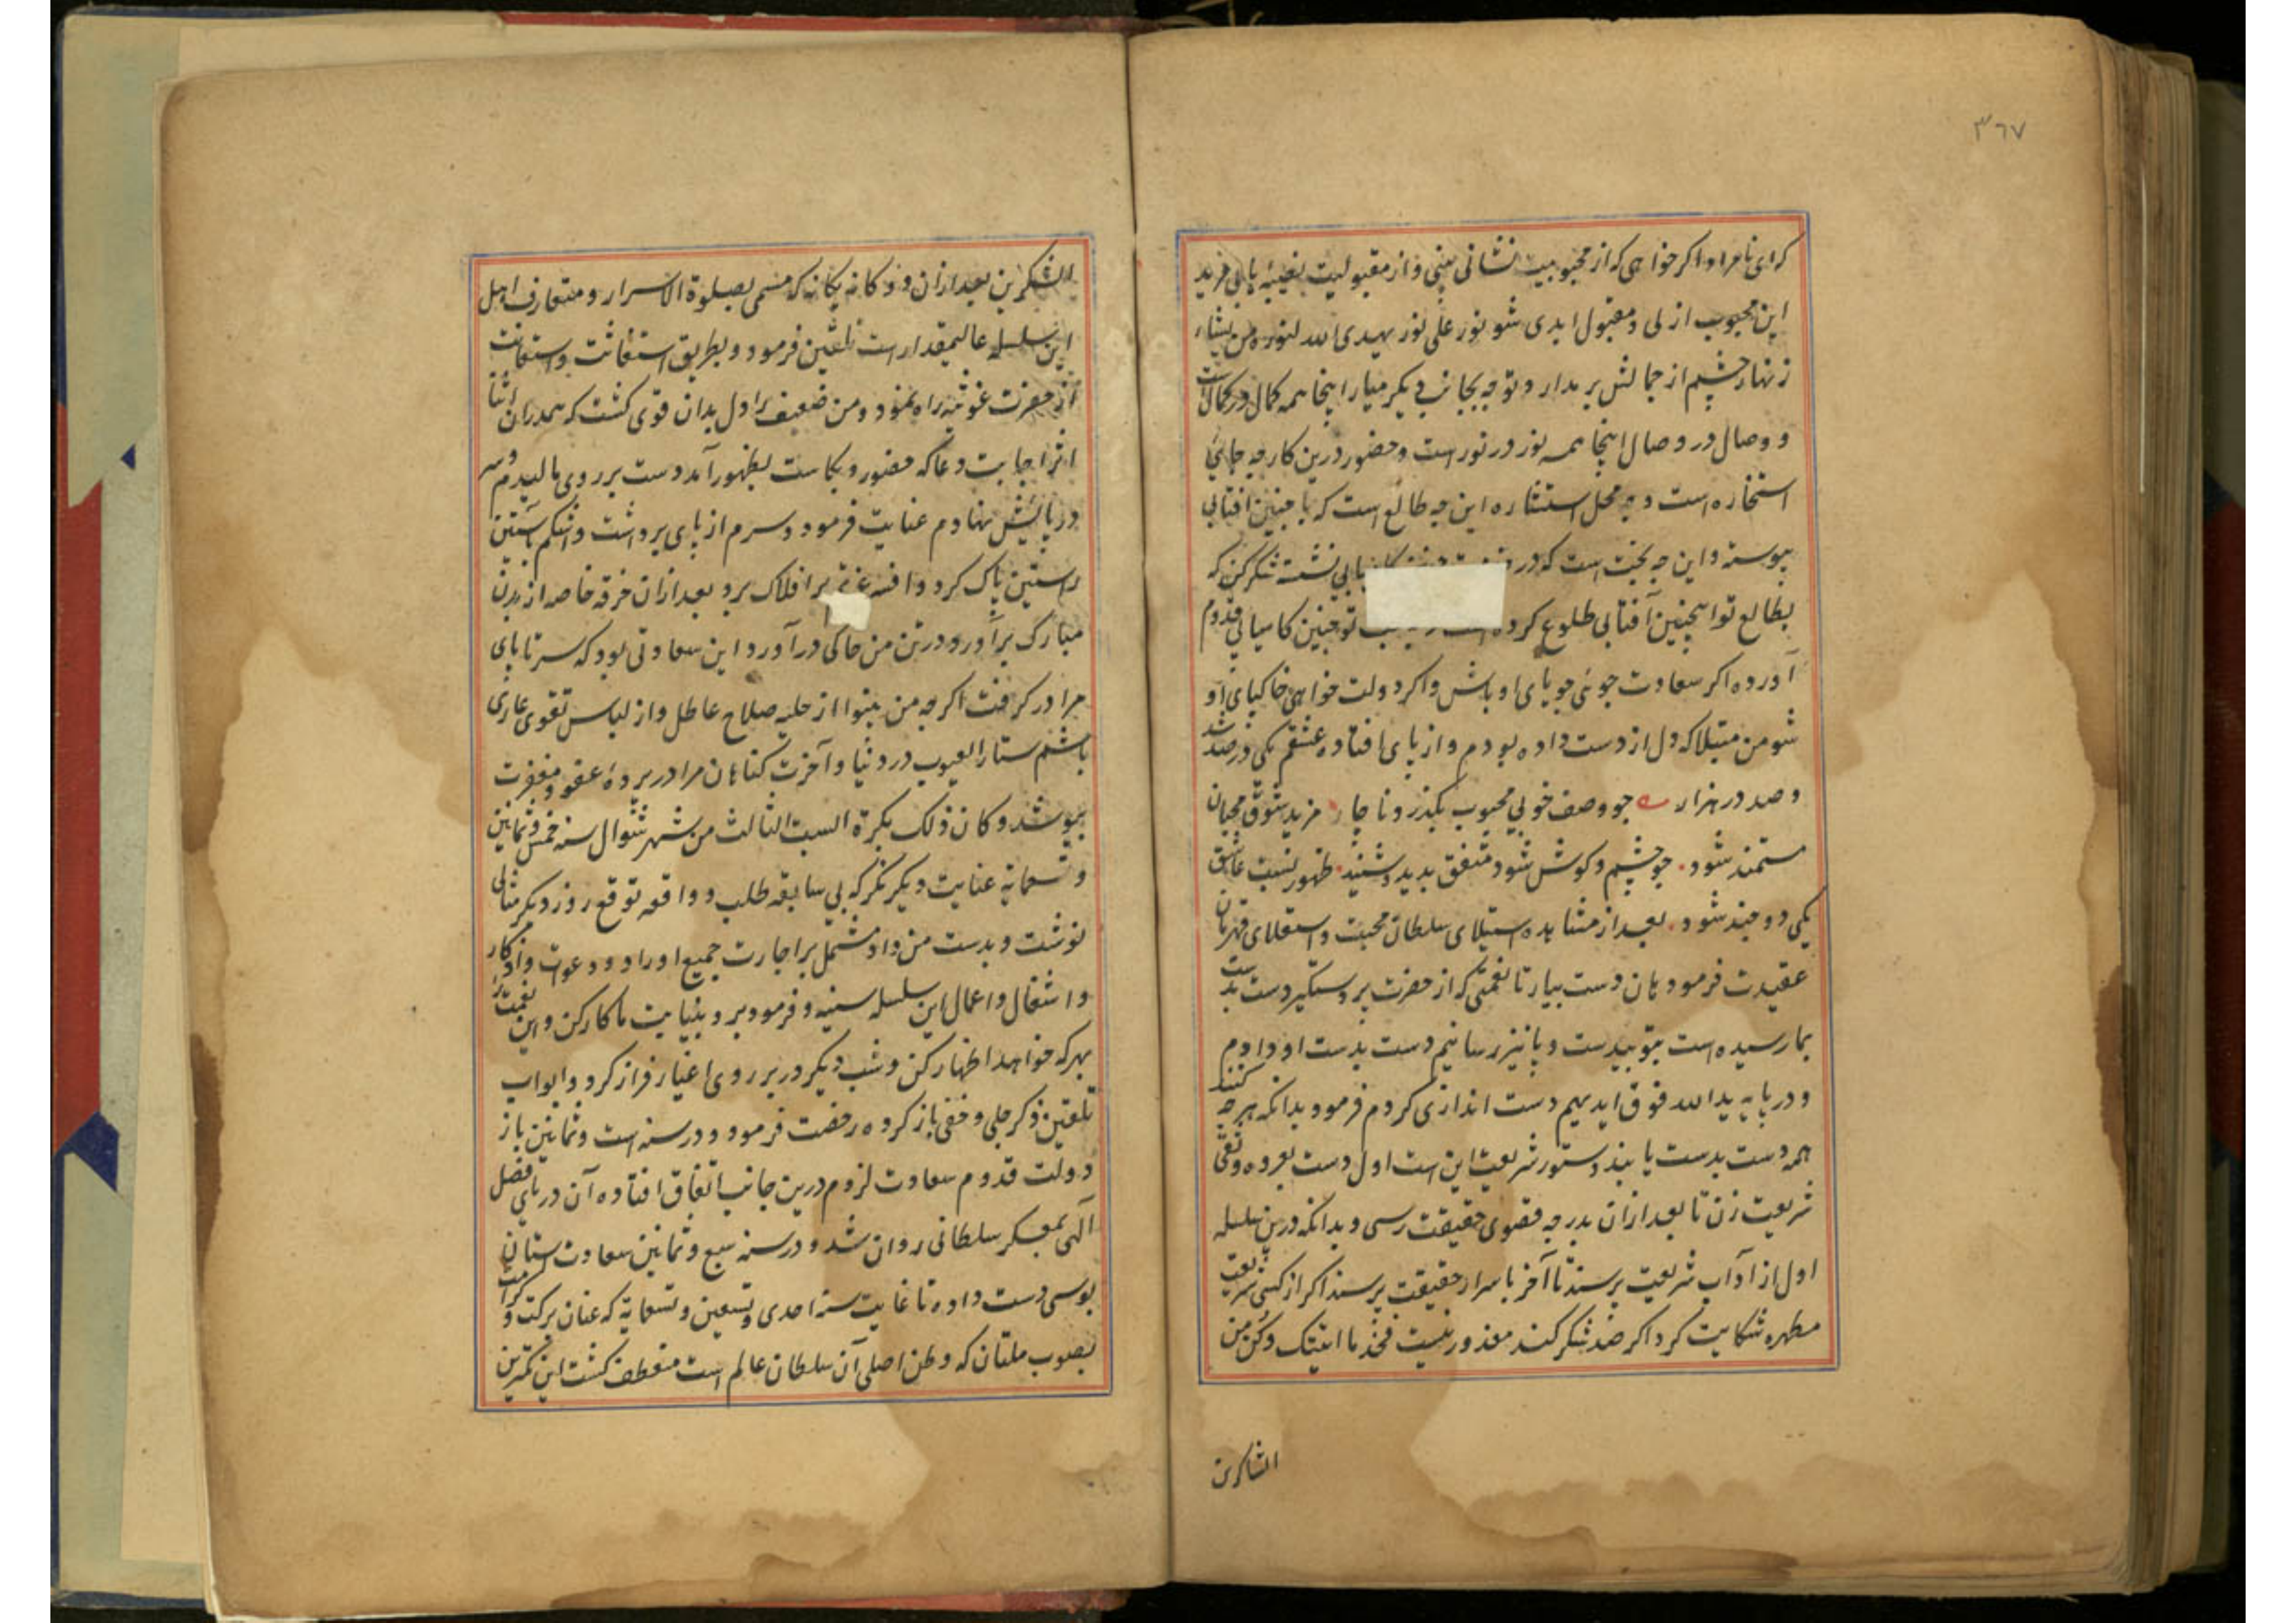 ۳۶۷
که ای نامراد اکر خواهی که از محبوبیت نشانی بینی و از مقبولیت نصیبهٔ یابی مرید
این محبوب ازلی و مقبول ابدی شو نور علی نور یهدی الله لنوره من یشاء
زنهار چشم از جمالش برمدار و توجه بجانب دیکر میار اینجا همه کمال در کمالست
و وصال در وصال اینجا همه نور در نور است و حضور درین کار چه جای
استخاره است و چه محل استشاره این چه طالع است که با چنین افتابی
پیوسته و این چه بخت است که در نشسته شکر کن که
بطالع تو اینچنین آفتابی طلوع کرده تو چنین کامیابی قدوم
آورده اکر سعادت جوئی جویای او باش و اکر دولت خواهی خاکپای او
شو من مبتلا که دل از دست داده بودم و از پای افتاده عشقم یکی در صد شد
و صد در هزار چو وصف خوبی محبوب بکذرد ناچار مزید شوق محبان
مستمند شود. چو چشم و کوش شود متفق بدید و شنید. ظهور نسبت عاشق
یکی دو چند شود. بعد از مشاهده استیلای سلطان محبت و استعلای قهرمان
عقیدت فرمود هان دست بیار تا نعمتی که از حضرت پیر دستکیر دست بدست
بما رسیده است بتو بدست و پا نیز رسانیم دست بدست او دادم
و در پایه یدالله فوق ایدیهم دست اندازی کردم فرمود بدانکه هر چه کنند
همه دست بدست یابند دستور شریعت این است اول دست بعروه وثقی
شریعت زن تا بعد از ان بدرجه قصوی حقیقت رسی و بدانکه درین سلسله
اول از آداب شریعت پرسند تا آخر باسرار حقیقت پرسند اکر از کسی شریعت
مطهره شکایت کرد اکر صد شکر کند معذور نیست فخذ ما اتیتک و کن من
الشاکرین
الشکرین بعد از ان دوکانه یکانه که مسمی بصلوة الاسرار و متعارف اهل
این سلسله عالیمقدار است تلقین فرمود و بطریق استغاثت و استعانت
از حضرت غوثیه راه نمود و من ضعیف را دل بدان قوی کشت که همدران اثنا
اثر اجابت دعا که حضور و بکاست بظهور آمد دست بر روی مالیدم و سر
در پایش نهادم عنایت فرمود و سرم از پای برداشت و اشکم بآستین
راستین پاک کرد و افسر عزتم بر افلاک برد بعد ازان خرقه خاصه از بدن
مبارک برآورد و در تن من خاکی درآورد این سعادتی بود که سر تا پای
مرا در کرفت اکرچه من بینوا از حلیه صلاح عاطل و از لباس تقوی عاری
باشم ستار العیوب در دنیا و آخرت کناهان مرا در پردهٔ عفو و مغفرت
بپوشد و کان ذلک بکرة السبت الثالث من شهر شوال سنه خمس و ثمانین
و تسعمایة عنایت دیکر نکر که بی سابقه طلب و واقعه توقع روز دیکر مثالی
نوشت و بدست من داد مشتمل بر اجازت جمیع اوراد و دعوات و اذکار
و اشغال و اعمال این سلسله سنیه و فرمود برو بنیابت ما کار کن و این نعمت را
بهر که خواهد اظهار کن و شب دیکر در بر روی اغیار فراز کرد و ابواب
تلقین ذکر جلی و خفی باز کرده رخصت فرمود و در سنه است و ثمانین باز
دولت قدوم سعادت لزوم درین جانب اتفاق افتاده آن دریای فضل
آلهی بمعسکر سلطانی روان شد و در سنه سبع و ثمانین سعادت ستان
بوسی دست داده تا غایت سنه احدی و تسعین و تسعمایة که عنان برکت و کرامت
بصوب ملتان که وطن اصلی آن سلطان عالم است منعطف کشت این کمترین